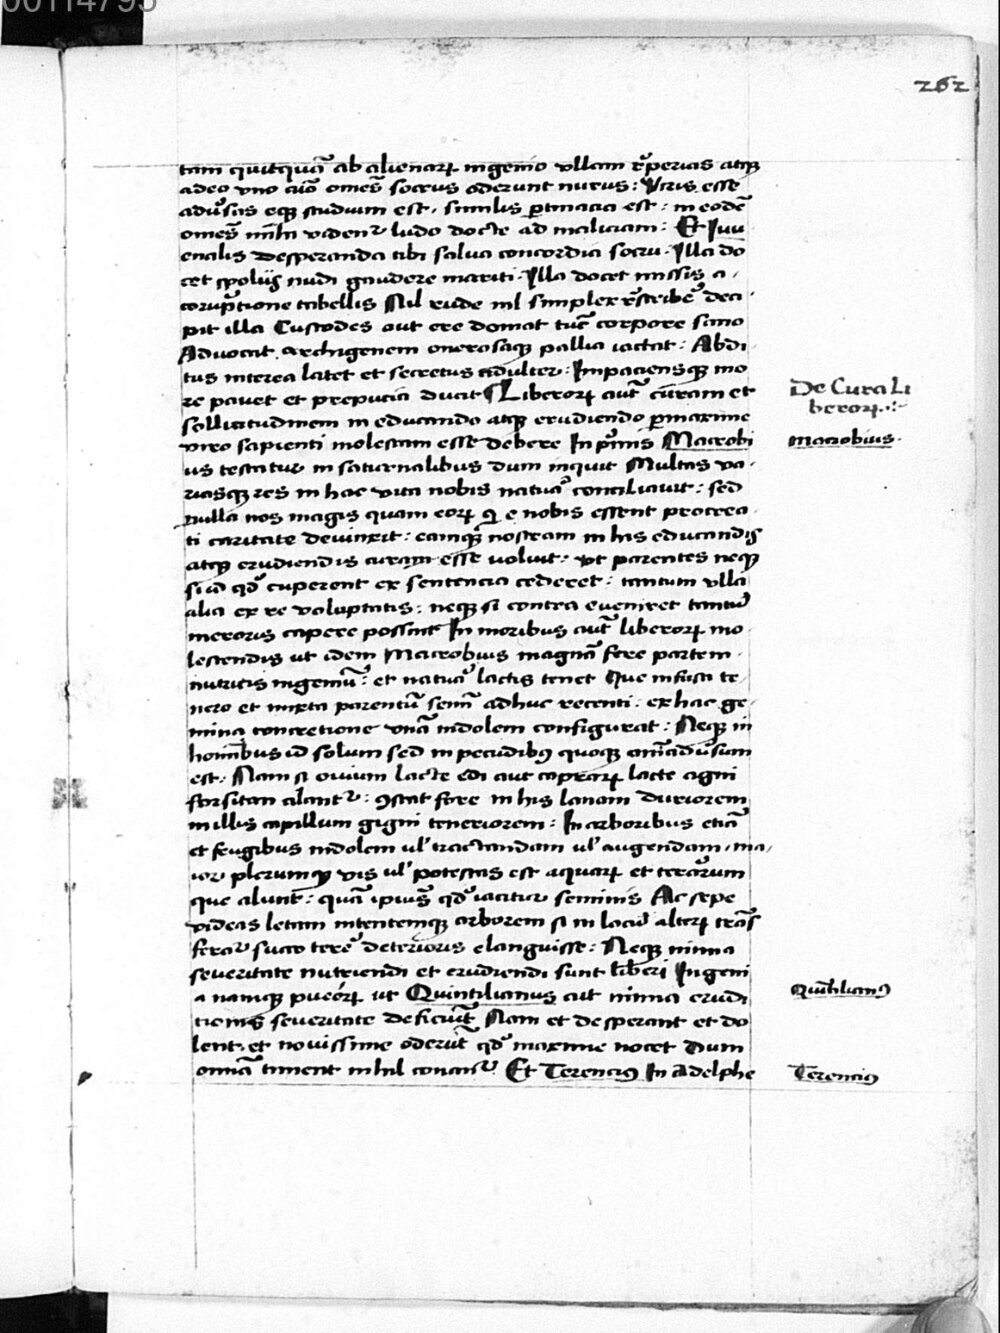 00114795
262
tam quitquã ab alienarꝝ ingenio ullam r̃perias atqꝫ
adeo uno aĩo omẽs socrus oderunt nurus: Viris esse
adũsas eqꝫ studium est. similis ꝑtinacia est: in eodẽ
omẽs mihi videnť ludo docte ad maliciam: Et Juu
enalis Desperanda tibi salua concordia socru. Illa do
cet spolijs nudi gaudere mariti. Illa docet missis a
corruptione tabellis Nil rude nil simplex r̃scribẽ deci
pit illa Custodes aut ere domat tũc corpore sano
Aduocat archigenem onerosaqꝫ pallia iactat: Abdi
tus interea latet et secretus adulter: Impaciensqꝫ mo
re pauet et prepucia ducit ¶ Liberorꝝ aut̃ curam et
sollicitudinem in educando atqꝫ erudiendo ꝑmaxime
viro sapienti molestam esse debere In pĩmis Macrobi
us testatur in saturnalibus dum inquit Multas va
riasqꝫ res in hac vita nobis natura conciliauit: sed
nulla nos magis quam eorꝝ qi e nobis essent procrea
ti caritate deuinxit: eamqꝫ nostram in his educandis
atqꝫ erudiendis curam esse uoluit: ut parentes neqꝫ
si id qđ cuperent ex sentencia cederet: tantum ulla
alia ex re voluptatis: neqꝫ si contra eueniret tantũ
meroris capere possint In moribus aut̃ liberorꝝ mo
lestendis ut idem Macrobius magnã fere partem
nutricis ingeniũ: et natura lactis tenet Que infusa te
nero et mixta parentũ semĩ adhuc recenti: ex hac ge
mina concretione unã indolem configurat: Neqꝫ in
hominibus id solum sed in pecudibꝫ quoqꝫ animaduersum
est: Nam si ouium lacte edi aut caprarꝝ lacte agni
forsitan alantr: ꝯstat fere in his lanam duriorem
in illis capillum gigni teneriorem: In arboribus etiã
et frugibus indolem ul' tractandam ul' augendam ma
ior plerumqꝫ vis ul' potestas est aquarꝝ et terrarum
que alunt: quã ipius qđ iacitur seminis Ac sepe
videas letam intentemqꝫ arborem si in locũ alterꝝ trãs
feratur succo terre deterioris elanguisse: Neqꝫ nimia
seueritate nutriendi et erudiendi sunt liberi Ingeni
a namqꝫ puerorꝝ ut Quintilianus ait nimia erudi
tionis seueritate deficiũt Nam et desperant et do
lent. et nouissime oderũt qđ maxime nocet dum
omnia timent nihil conantr Et Terencius In Adelphe
De Cura Li
berorꝝ.:-
Macrobius.
Quintilianus
Terencius